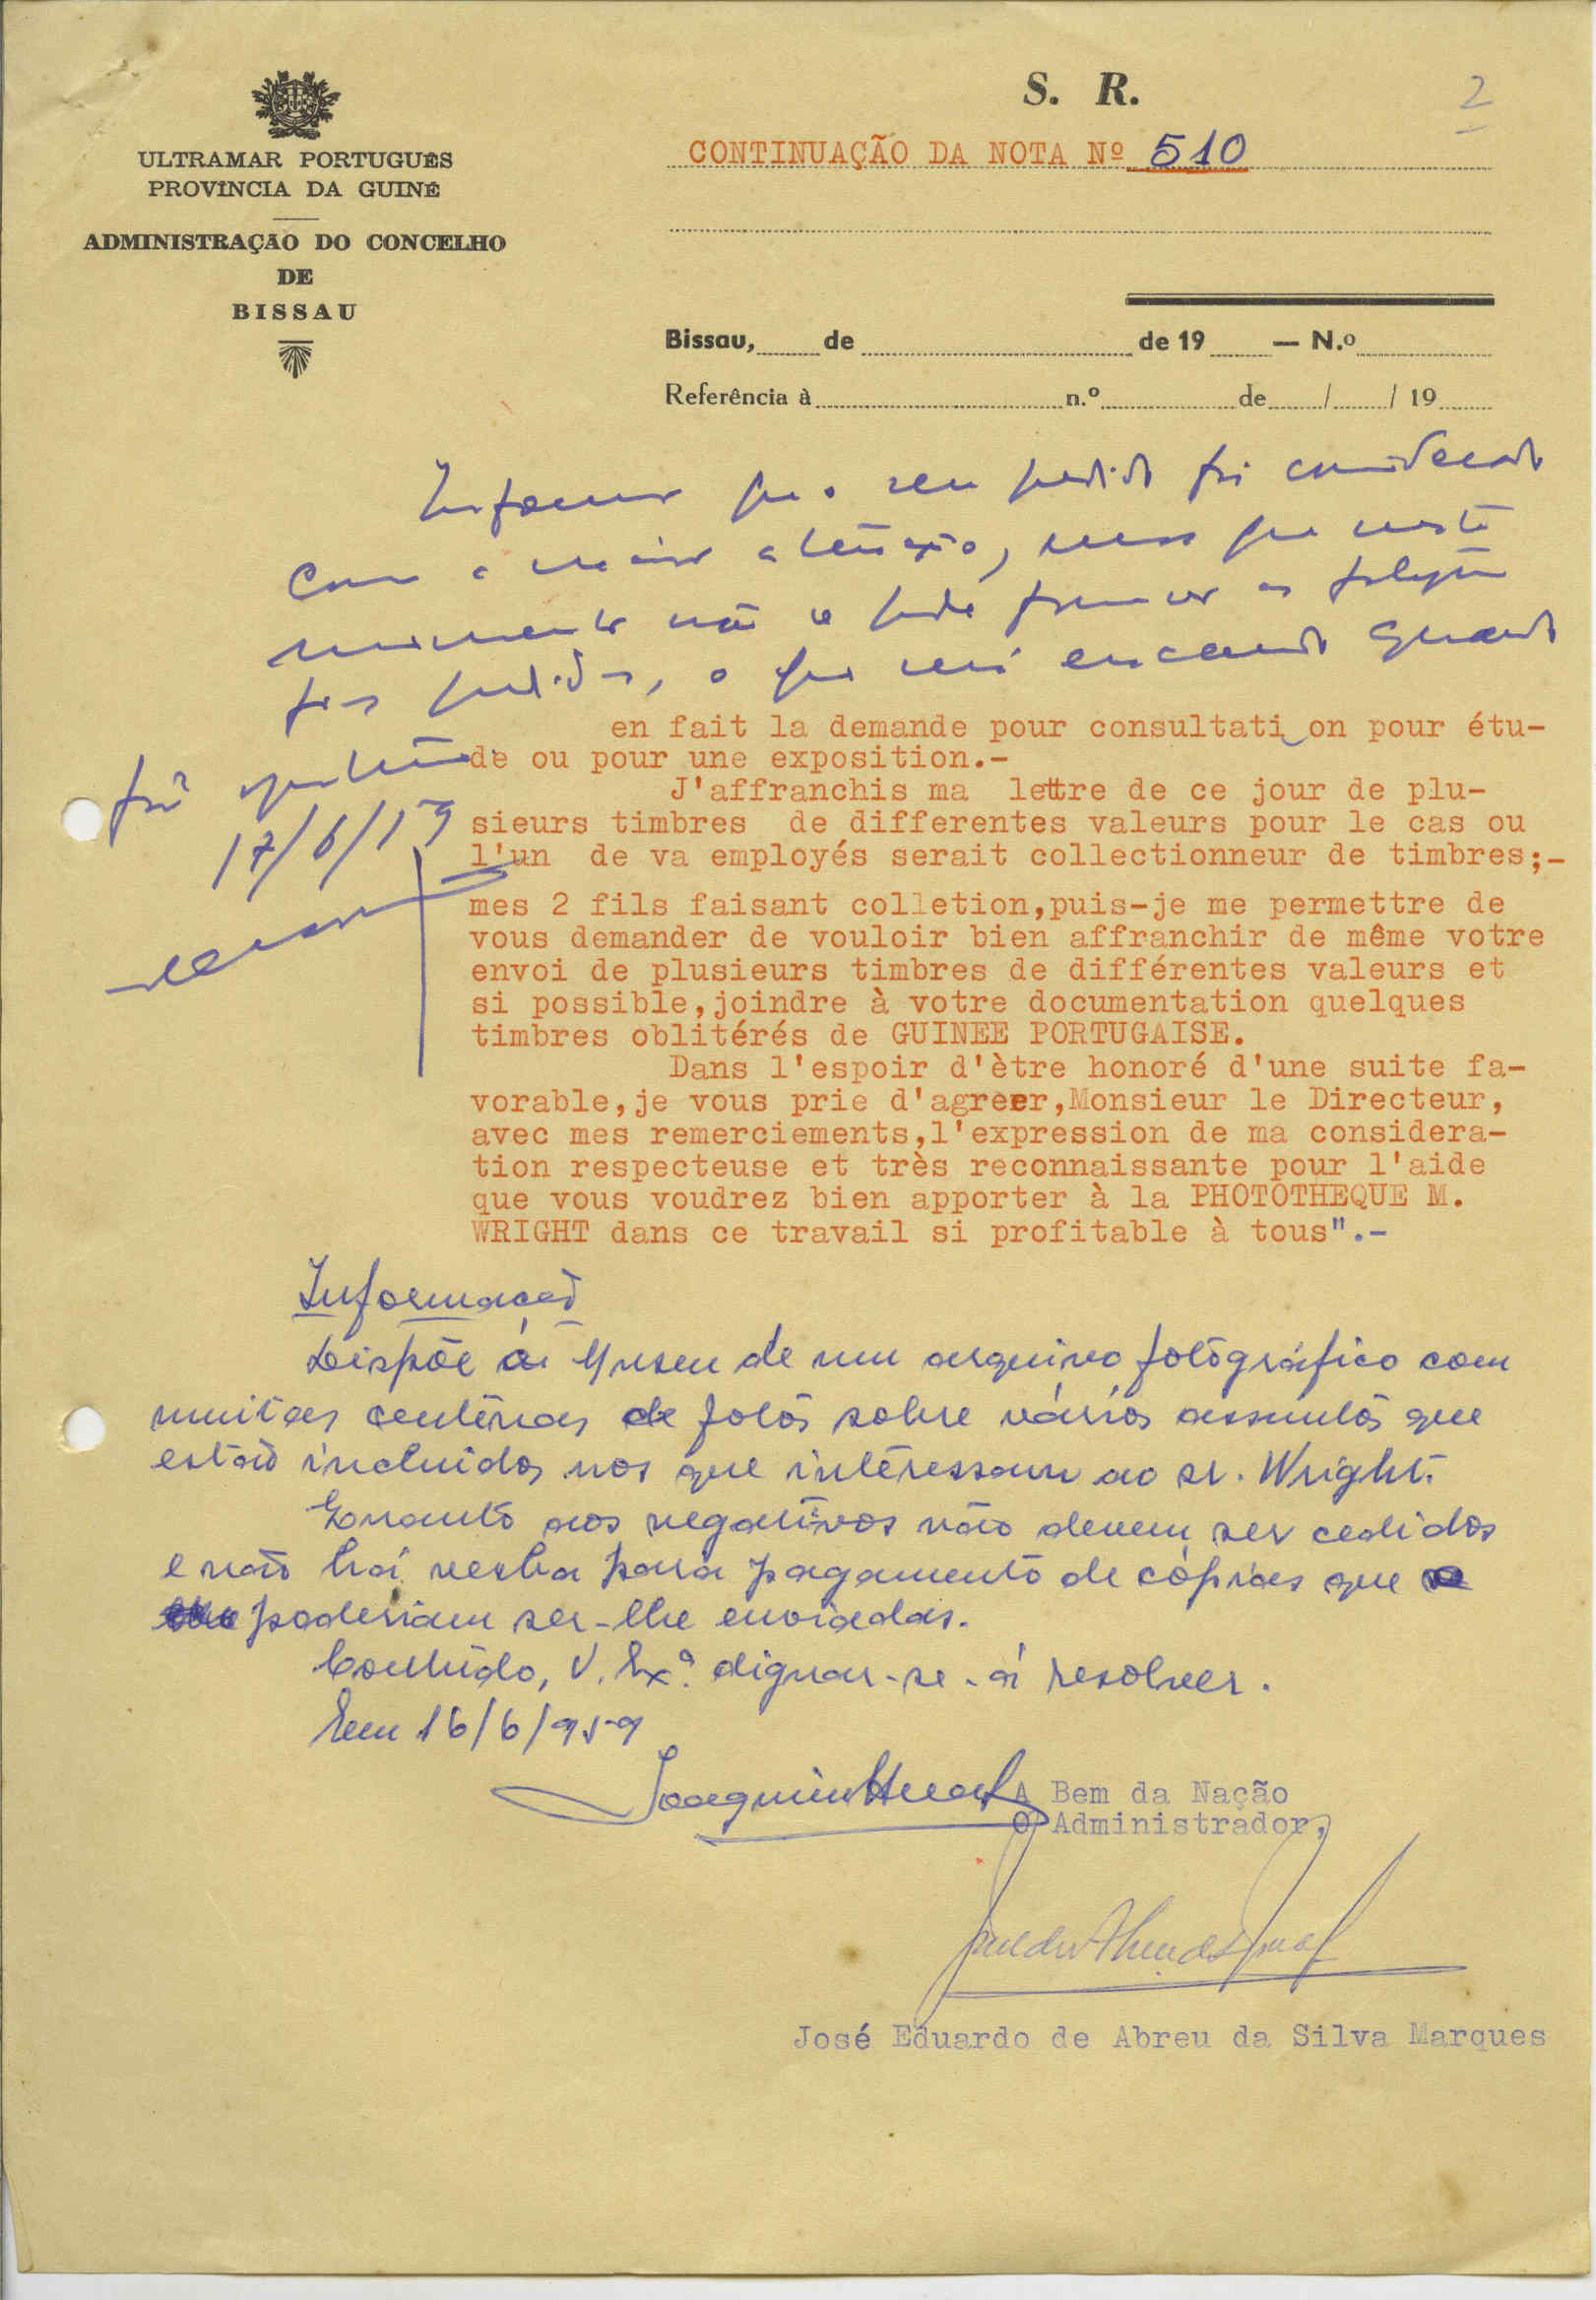 S. R.
2
ULTRAMAR PORTUGUÊS
PROVÍNCIA DA GUINÉ
ADMINISTRAÇÃO DO CONCELHO
DE
BISSAU
CONTINUAÇÃO DA NOTA Nº 510
Bissau, de de 19 — N.º
Referência à n.º de / / 19
Informar que o seu pedido foi considerado
com a maior atenção, mas que neste
momento não se pode fornecer as
pedidas, o que será enviado quando
17/6/59
en fait la demande pour consultation pour étu-
de ou pour une exposition.-
J'affranchis ma lettre de ce jour de plu-
sieurs timbres de differentes valeurs pour le cas ou
l'un de va employés serait collectionneur de timbres;-
mes 2 fils faisant colletion,puis-je me permettre de
vous demander de vouloir bien affranchir de même votre
envoi de plusieurs timbres de différentes valeurs et
si possible,joindre à votre documentation quelques
timbres oblitérés de GUINEE PORTUGAISE.
Dans l'espoir d'ètre honoré d'une suite fa-
vorable,je vous prie d'agreer,Monsieur le Directeur,
avec mes remerciements,l'expression de ma considera-
tion respecteuse et très reconnaissante pour l'aide
que vous voudrez bien apporter à la PHOTOTHEQUE M.
WRIGHT dans ce travail si profitable à tous".-
Informação
Dispõe o Museu de um arquivo fotográfico com
muitas centenas de fotos sobre vários assuntos que
estão incluidos nos que interessam ao sr. Wright.
Quanto aos negativos não devem ser cedidos
e não há verba para pagamento de cópias que
poderiam ser-lhe enviadas.
Contudo, V. Exª. dignar-se-á resolver.
Em 16/6/959
A Bem da Nação
O Administrador,
José Eduardo de Abreu da Silva Marques